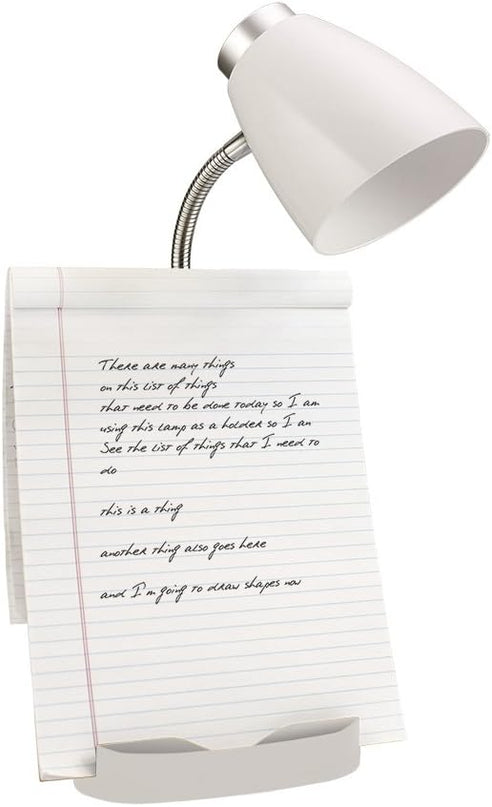 There are many things
on this list of things
that need to be done today so I am
using this lamp as a holder so I an
See the list of things that I need to
do
this is a thing
another thing also goes here
and I'm going to draw shapes now